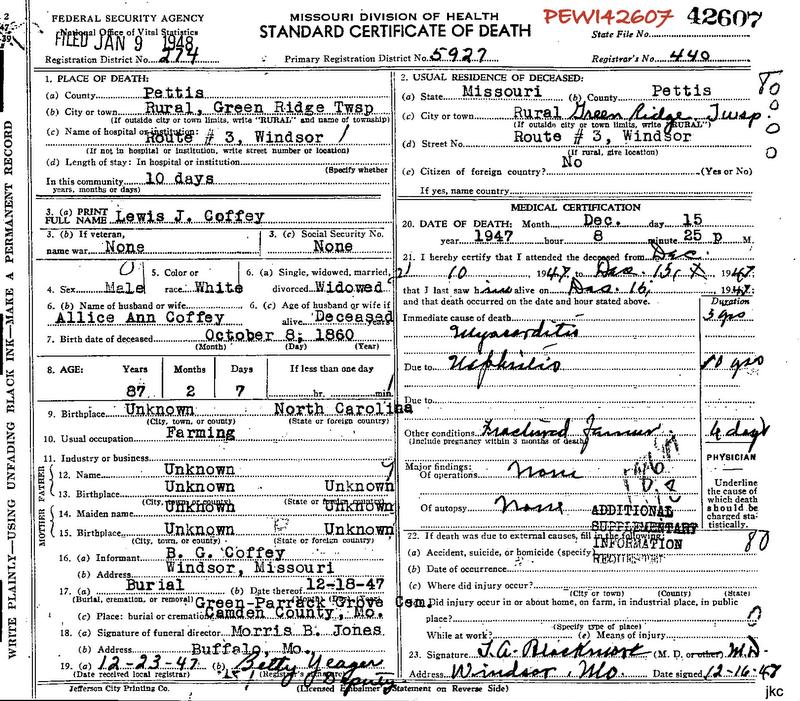 FEDERAL SECURITY AGENCY
National Office of Vital Statistics
FILED JAN 9 1948
Registration District No. 274
MISSOURI DIVISION OF HEALTH
STANDARD CERTIFICATE OF DEATH
Primary Registration District No. 5927
PEW142607 42607
State File No.
Registrar's No. 440
WRITE PLAINLY—USING UNFADING BLACK INK—MAKE A PERMANENT RECORD
1. PLACE OF DEATH:
(a) County Pettis
(b) City or town Rural, Green Ridge Twsp
(If outside city or town limits, write "RURAL" and name of township)
(c) Name of hospital or institution:
Route # 3, Windsor
(If not in hospital or institution, write street number or location)
(d) Length of stay: In hospital or institution
(Specify whether
In this community 10 days
years, months or days)
3. (a) PRINT FULL NAME Lewis J. Coffey
3. (b) If veteran, name war None
3. (c) Social Security No. None
4. Sex Male
5. Color or race White
6. (a) Single, widowed, married, divorced Widowed
6. (b) Name of husband or wife
Allice Ann Coffey
6. (c) Age of husband or wife if alive Deceased years
7. Birth date of deceased October 8, 1860
(Month) (Day) (Year)
8. AGE: Years Months Days If less than one day
87 2 7 hr. min.
9. Birthplace Unknown North Carolina
(City, town, or county) (State or foreign country)
10. Usual occupation Farming
11. Industry or business
FATHER
12. Name Unknown
13. Birthplace Unknown Unknown
(City, town, or county) (State or foreign country)
MOTHER
14. Maiden name Unknown
15. Birthplace Unknown Unknown
(City, town, or county) (State or foreign country)
16. (a) Informant B. G. Coffey
(b) Address Windsor, Missouri
17. (a) Burial (b) Date thereof 12-18-47
(Burial, cremation, or removal) (Month) (Day) (Year)
Green-Parrack Grove Cem.
(c) Place: burial or cremation Camden County, Mo.
18. (a) Signature of funeral director Morris B. Jones
(b) Address Buffalo, Mo.
19. (a) 12-23-47 (b) Betty Yeager
(Date received local registrar) (Registrar's signature)
Deputy
2. USUAL RESIDENCE OF DECEASED:
(a) State Missouri (b) County Pettis
(c) City or town Rural Green Ridge Twsp.
(If outside city or town limits, write "RURAL")
(d) Street No. Route # 3, Windsor
(If rural, give location)
(e) Citizen of foreign country? No (Yes or No)
If yes, name country
MEDICAL CERTIFICATION
20. DATE OF DEATH: Month Dec. day 15
year 1947 hour 8 minute 25 p M.
21. I hereby certify that I attended the deceased from Dec.
10 1947 to Dec. 15, 1947
that I last saw him alive on Dec. 15, 1947
and that death occurred on the date and hour stated above.
Duration
Immediate cause of death 3 yrs
Myocarditis
Due to Nephritis 10 yrs
Due to
Other conditions Fractured Femur 4 days
(Include pregnancy within 3 months of death)
PHYSICIAN
Major findings:
Of operations None
Of autopsy None
Underline the cause of which death should be charged statistically.
ADDITIONAL
SUPPLEMENTARY
INFORMATION
REQUESTED
22. If death was due to external causes, fill in the following:
(a) Accident, suicide, or homicide (specify) 80
(b) Date of occurrence
(c) Where did injury occur?
(City or town) (County) (State)
Did injury occur in or about home, on farm, in industrial place, in public place?
(Specify type of place)
While at work? (e) Means of injury
23. Signature T. A. Blackmore (M. D. or other) M.D.
Address Windsor, Mo Date signed 12-16-47
Jefferson City Printing Co.
(Licensed Embalmer Statement on Reverse Side)
jkc